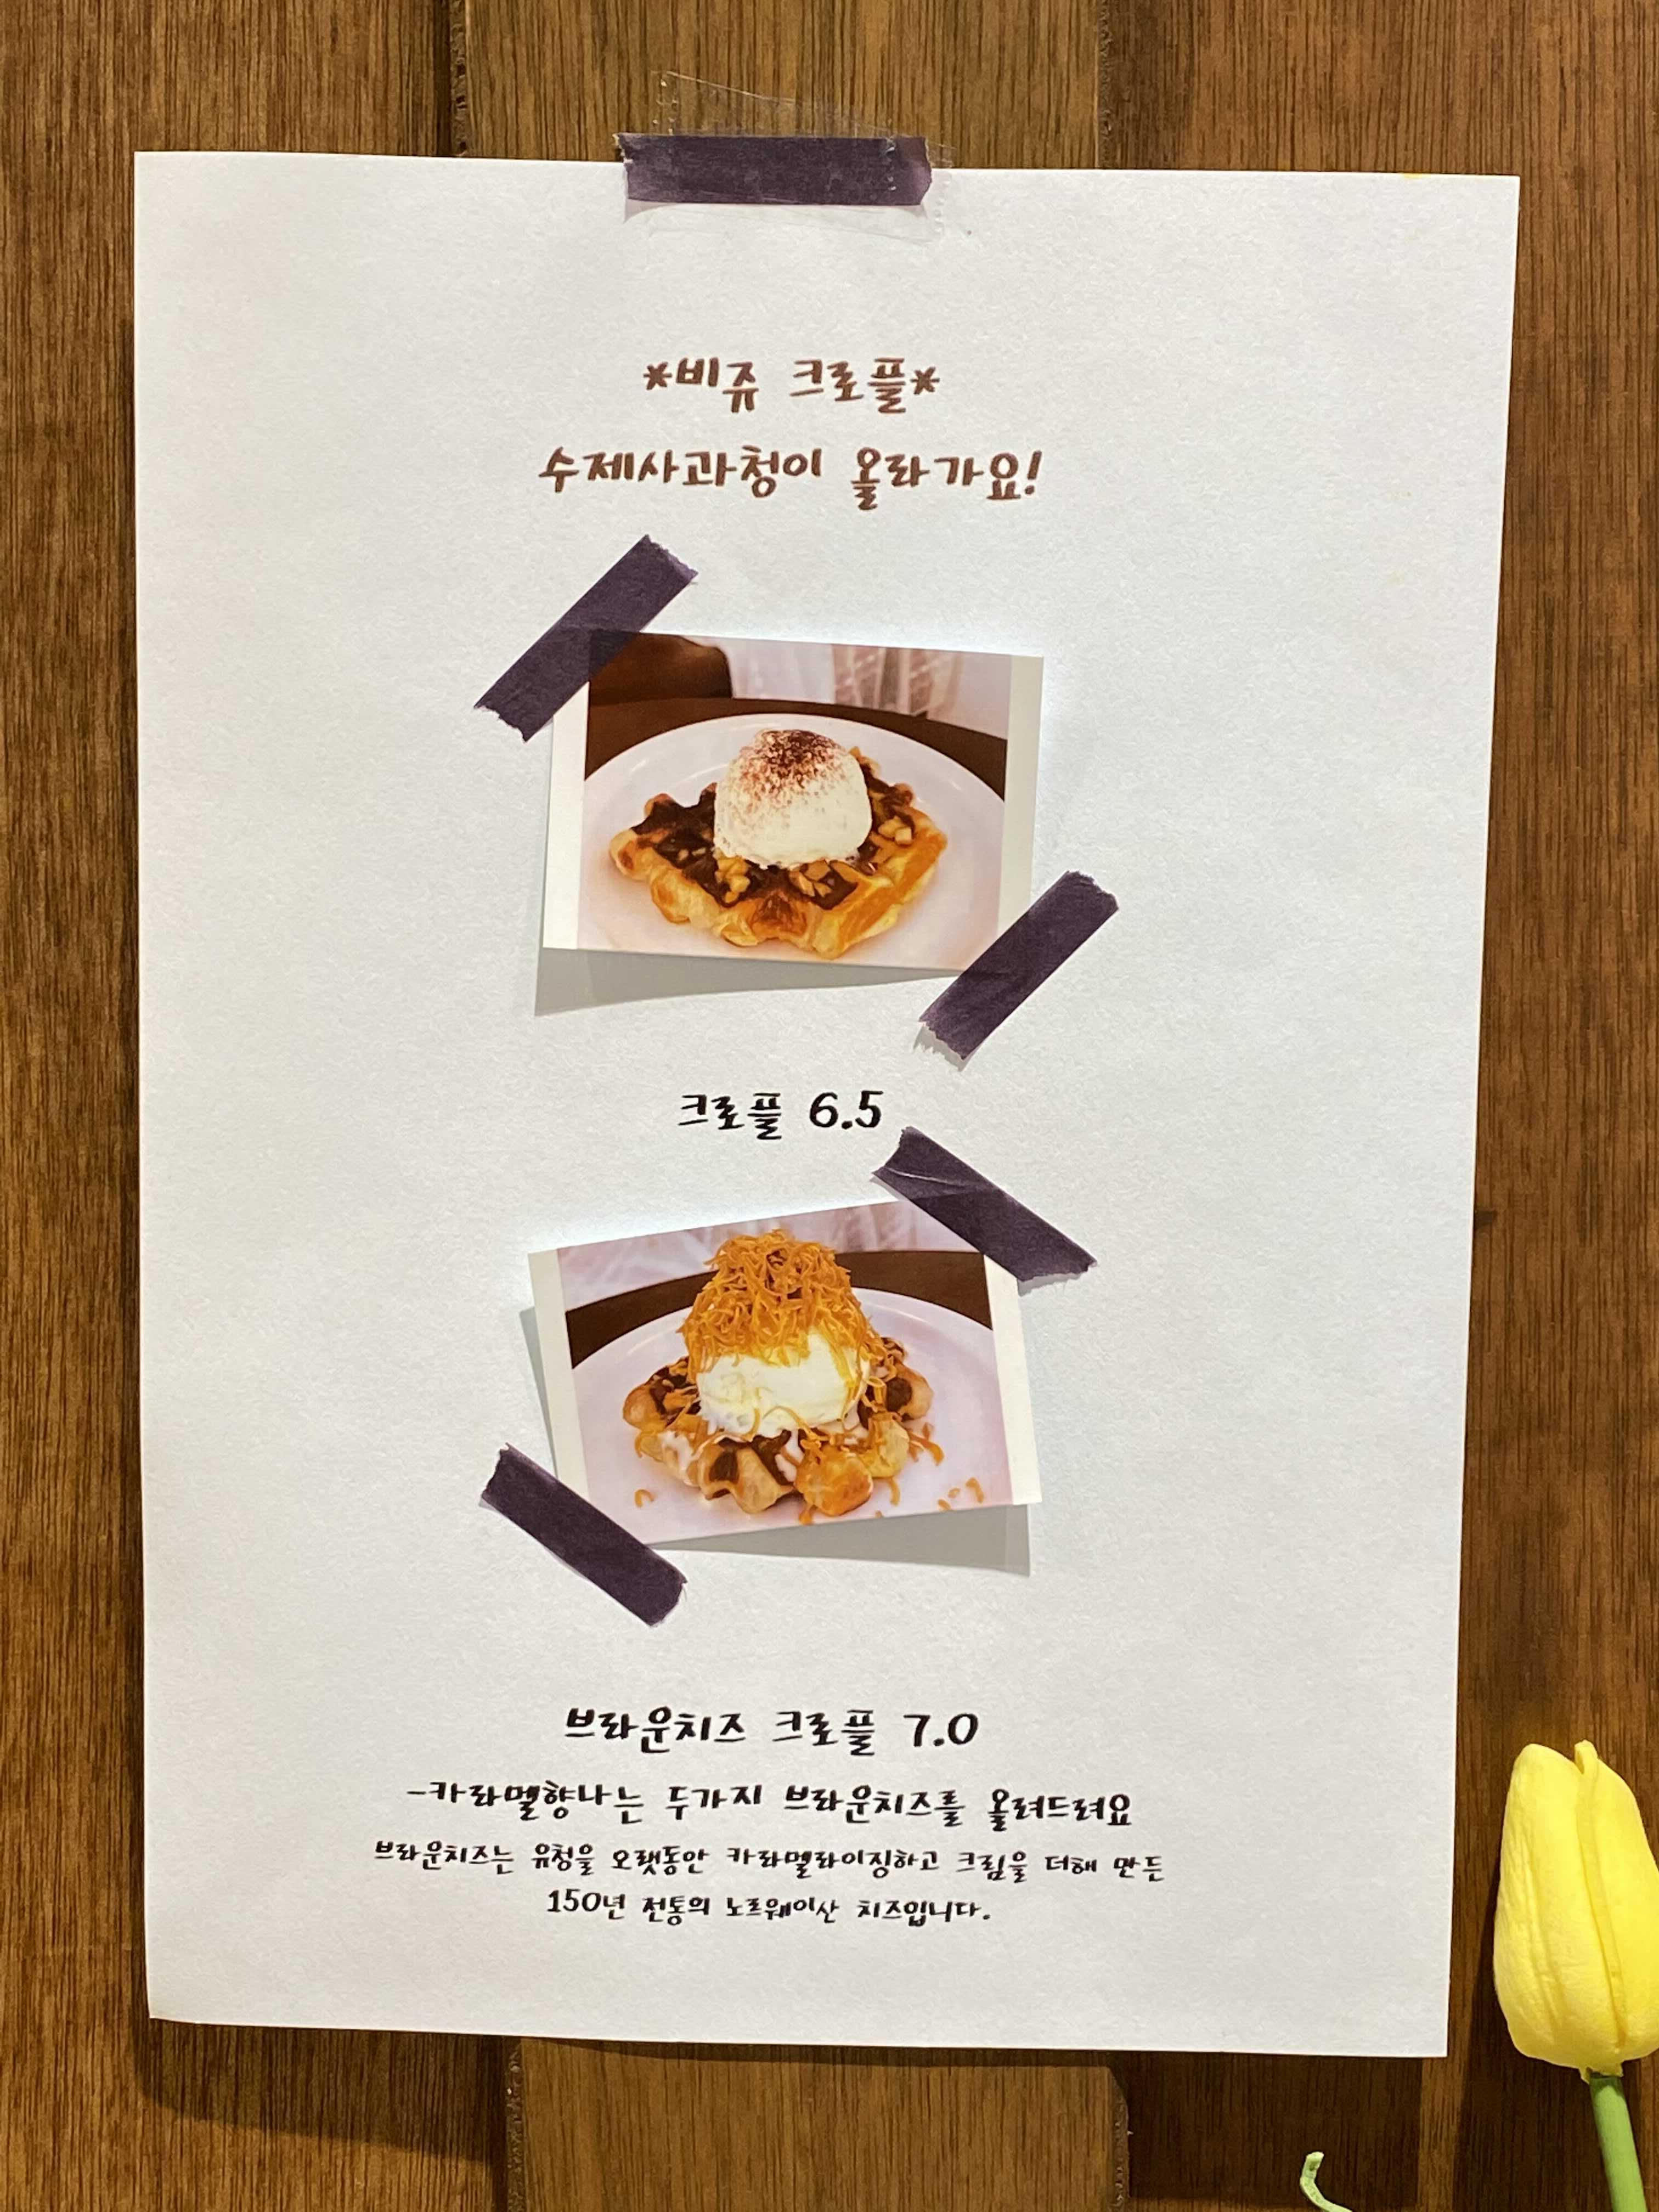 *비쥬 크로플*
수제사과청이 올라가요!
크로플 6.5
브라운치즈 크로플 7.0
-카라멜향나는 두가지 브라운치즈를 올려드려요
브라운치즈는 유청을 오랫동안 카라멜라이징하고 크림을 더해 만든
150년 전통의 노르웨이산 치즈입니다.